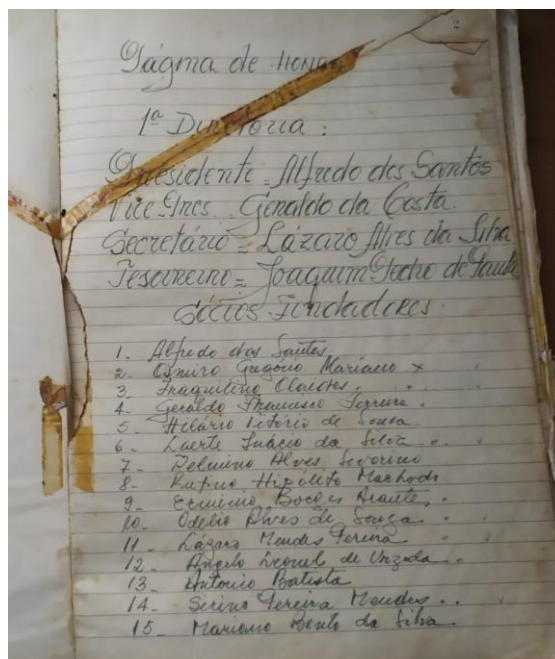 2
Página de Honra
1ª Diretoria :
Presidente = Alfredo dos Santos
Vice-Pres. Geraldo da Costa.
Secretário = Lázaro Alves da Silva
Tesoureiro = Joaquim Pedro de Paula
Sócios Fundadores
1. Alfredo dos Santos
2. Gregorio Mariano x
3.
4. Geraldo Francisco Ferreira.
5. Hilário Vitorio de Sousa
6. Laerte Inácio da Silva
7. Delmino Alves Severino
8. Rufino Hipólito Machado
9. Borges
10. Odelio Alves de Souza
11. Lázaro Mendes Pereira
12. Angelo Leonel de
13. Antonio Batista
14. Sirino Pereira Mendes
15. Mariano Bento da Silva